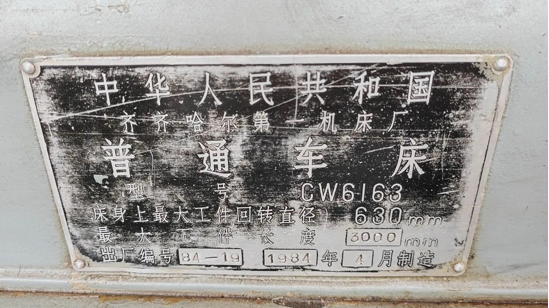 中华人民共和国
齐齐哈尔第一机床厂
普通车床
型号 CW6163
床身上最大工件回转直径 630mm
最大工件长度 3000min
出厂编号 84-19 1984年4月制造